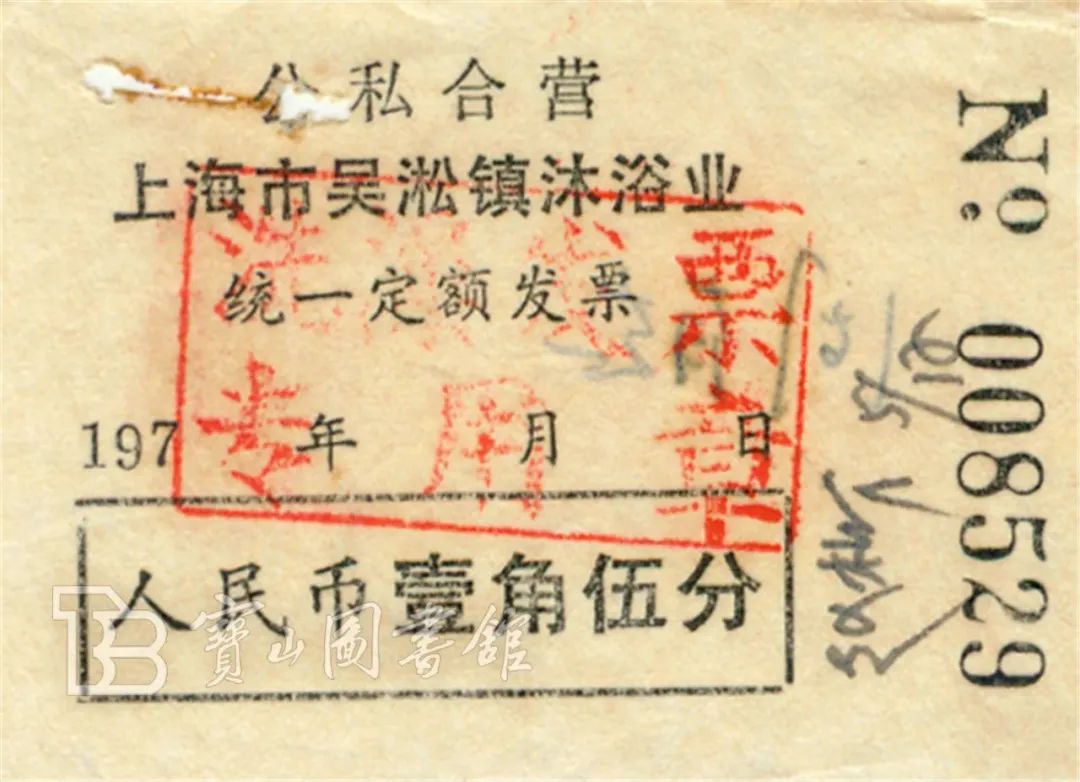 公私合营
上海市吴淞镇沐浴业
统一定额发票
197 年 月 日
人民币壹角伍分
票
专用章
No. 008529
5/10
寶山圖書館